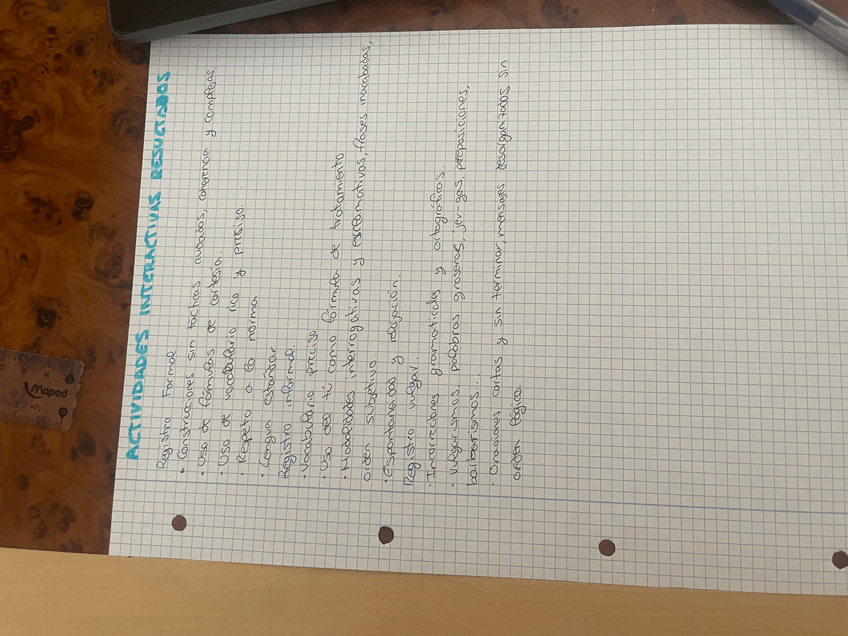 ACTIVIDADES INTERACTIVAS RESULTADOS
Registro Formal
• Construcciones sin tacticas cuidadas, coherencia y complejas
• Uso de fórmulas de cortesía.
• Uso de vocabulario rico y preciso.
• Respeto a la norma
• Lengua estándar
Registro informal.
• Vocabulario preciso
• Uso del tú como formula de tratamiento
• Modalidades interrogativas y exclamativas, frases inacabadas,
orden subjetivo
• Espontaneidad y relajación.
Registro vulgar.
• Incorrecciones gramaticales y ortográficas.
• Vulgarismos, palabras groseras, jer-gas, preposiciones,
barbarismos...
• Oraciones cortas y sin terminar, mensajes desorganizados, sin
orden lógico.
Maped